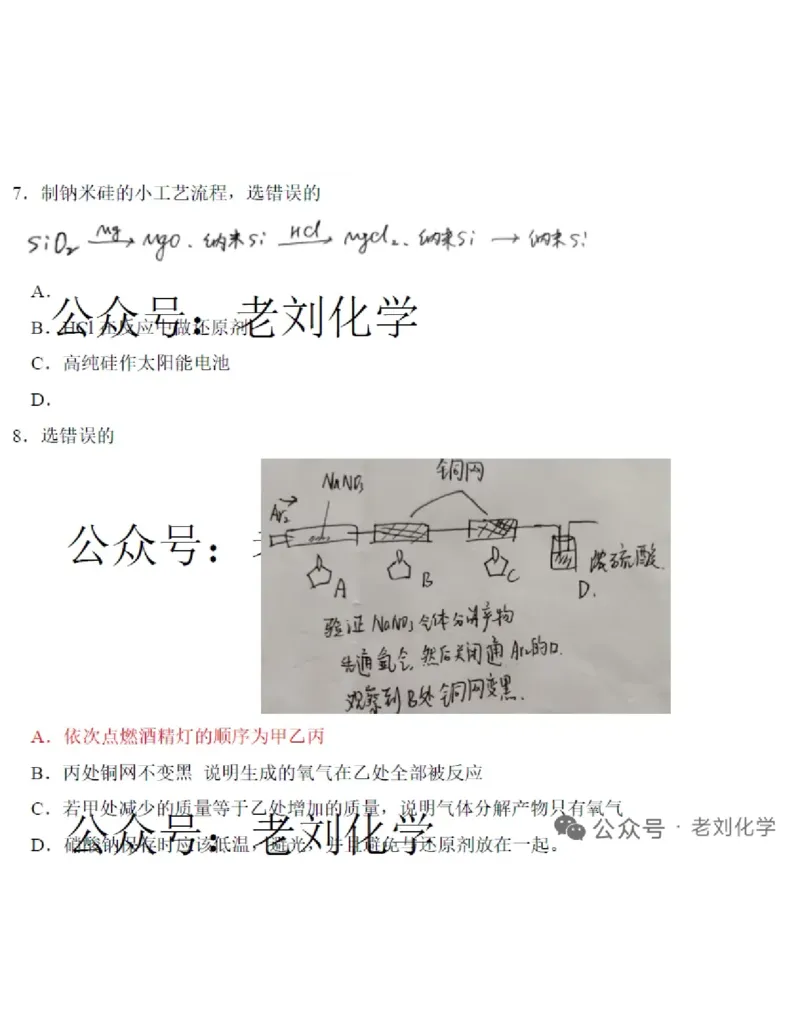 7. 制钠米硅的小工艺流程，选错误的
SiO₂ —Mg→ MgO、纳米Si —HCl→ MgCl₂、纳米Si → 纳米Si
A.
公众号：老刘化学
B. HCl 在反应中做还原剂
C. 高纯硅作太阳能电池
D.
8. 选错误的
公众号：
铜网
NaNO₃
Ar₂
A
B
C
浓硫酸
D.
验证NaNO₃气体分解产物
先通氩气，然后关闭通Ar₂的口.
观察到B处铜网变黑.
A. 依次点燃酒精灯的顺序为甲乙丙
B. 丙处铜网不变黑 说明生成的氧气在乙处全部被反应
C. 若甲处减少的质量等于乙处增加的质量，说明气体分解产物只有氧气
公众号：老刘化学
公众号 · 老刘化学
D. 硝酸钠保存时应该低温，避光，并且避免与还原剂放在一起。